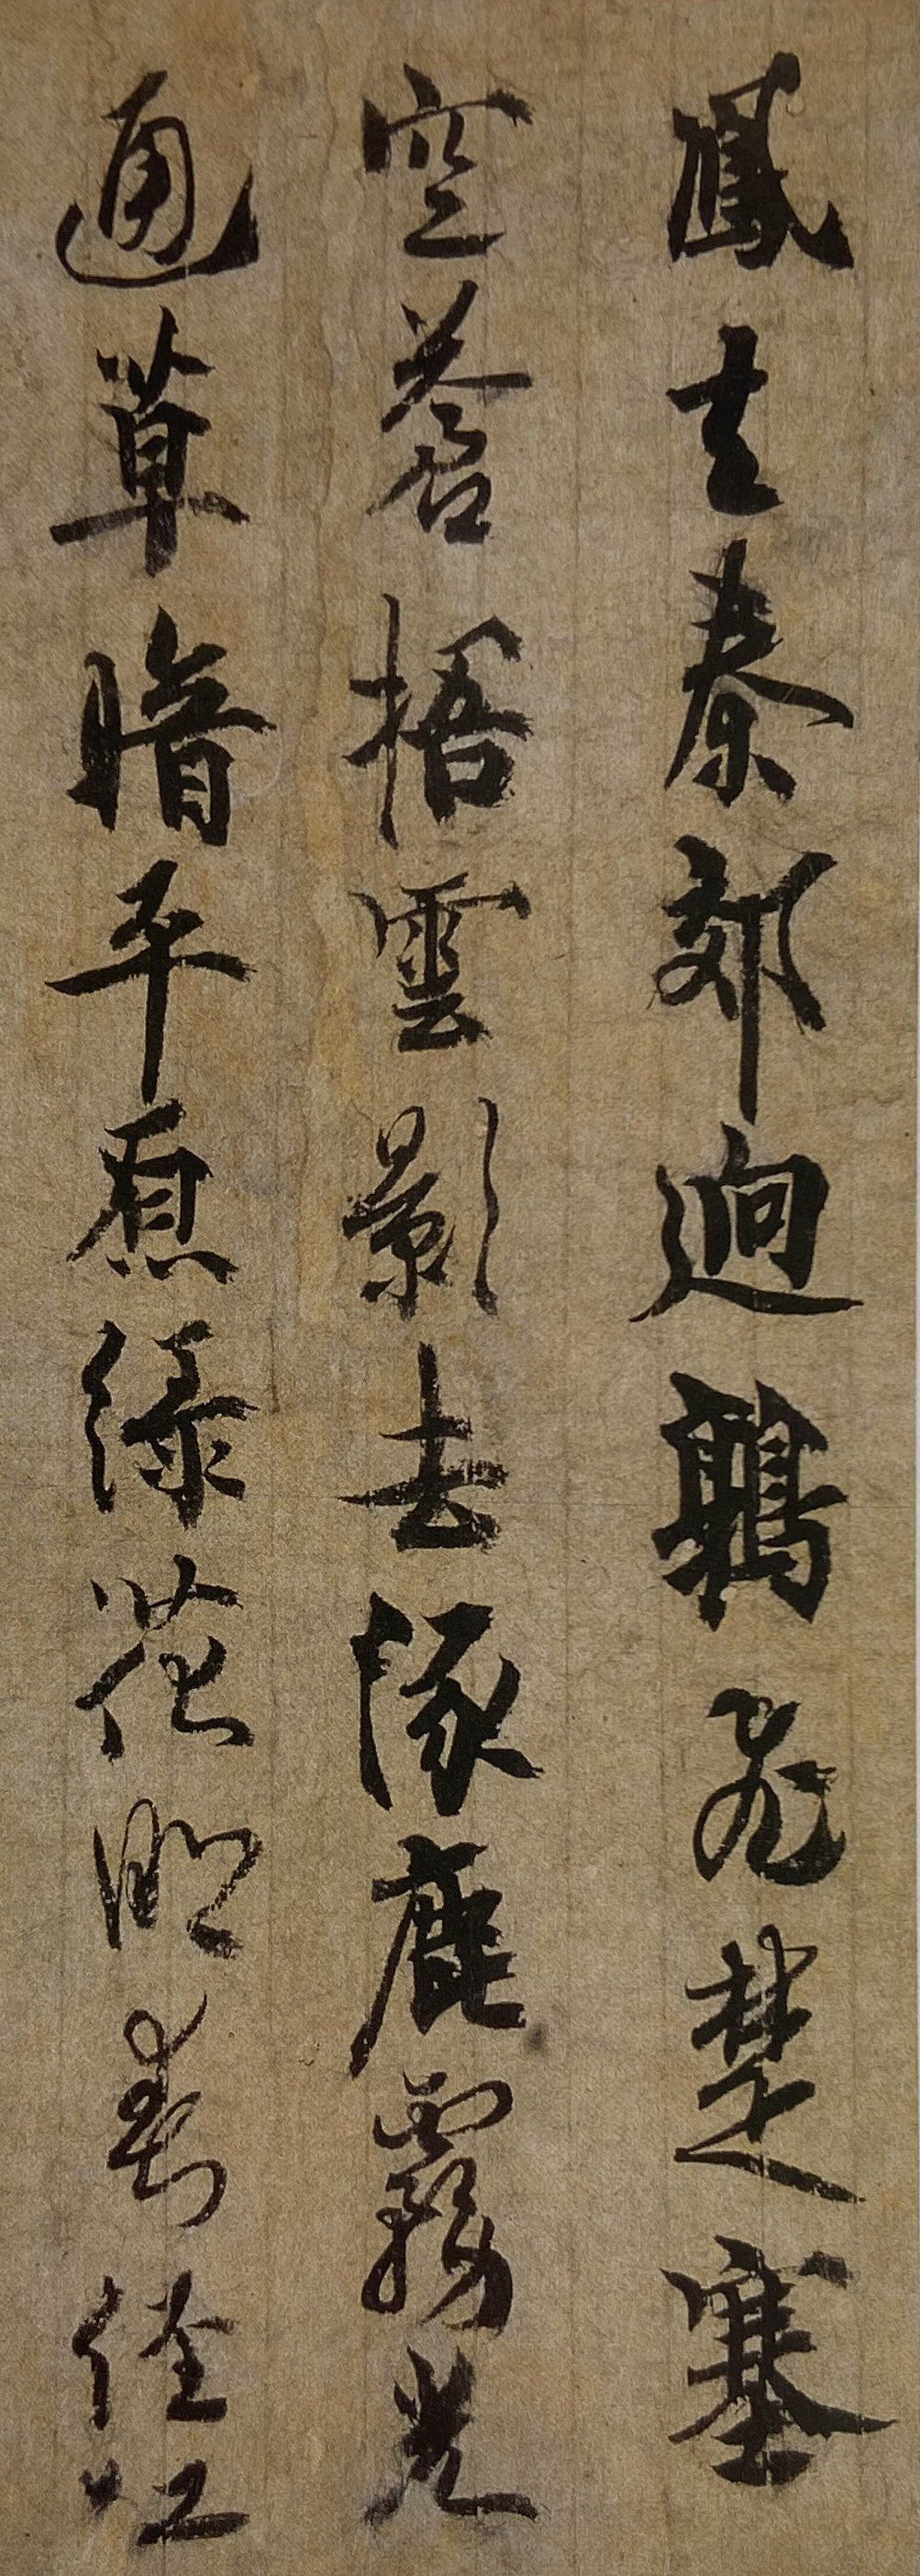 鳳去秦郊迥鶉飛楚塞
空蒼梧雲影去涿鹿霧光
通草暗平原緑花明春徑紅